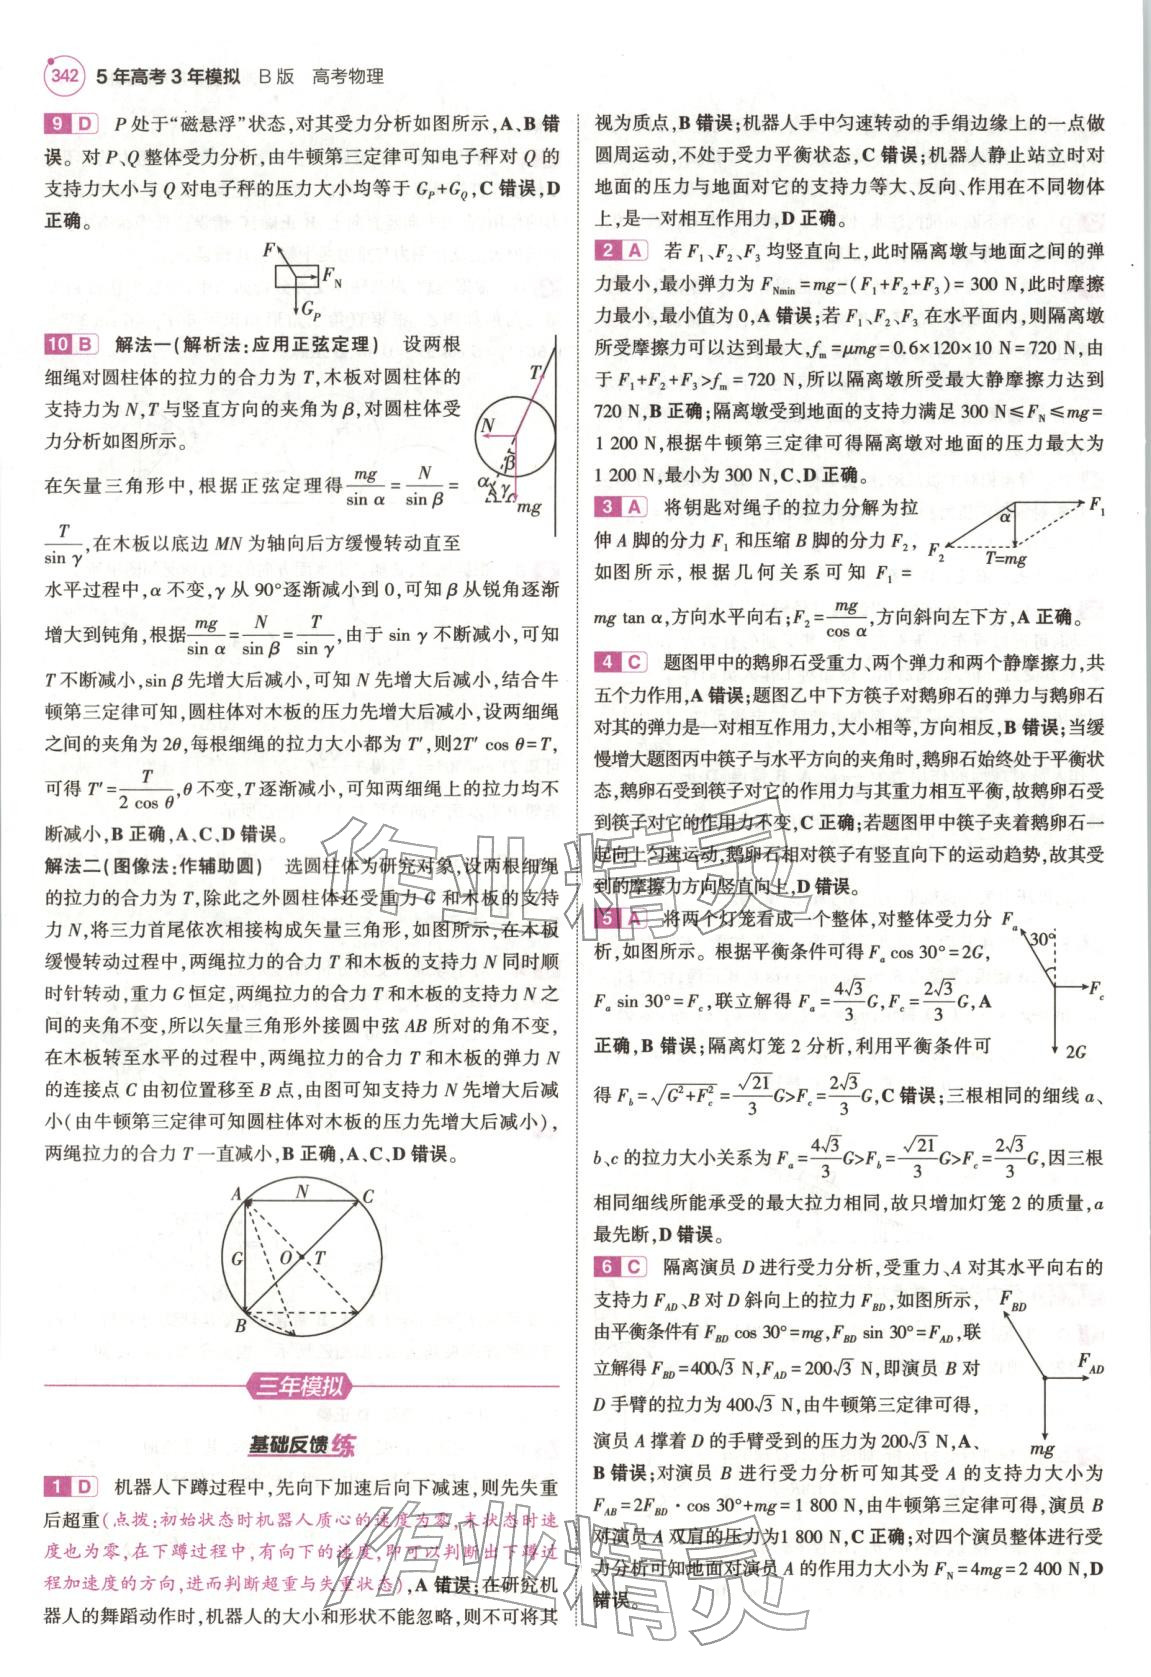 342 5年高考3年模拟 B版 高考物理
9 D P处于“磁悬浮”状态,对其受力分析如图所示,A、B错
误。对P、Q整体受力分析,由牛顿第三定律可知电子秤对Q的
支持力大小与Q对电子秤的压力大小均等于G_P+G_Q,C错误,D
正确。
F
F_N
G_P
10 B 解法一(解析法:应用正弦定理) 设两根
细绳对圆柱体的拉力的合力为T,木板对圆柱体的
支持力为N,T与竖直方向的夹角为β,对圆柱体受
力分析如图所示。
T
N
β
α
γ
mg
在矢量三角形中,根据正弦定理得mg/sin α=N/sin β=
T/sin γ,在木板以底边MN为轴向后方缓慢转动直至
水平过程中,α不变,γ从90°逐渐减小到0,可知β从锐角逐渐
增大到钝角,根据mg/sin α=N/sin β=T/sin γ,由于sin γ不断减小,可知
T不断减小,sin β先增大后减小,可知N先增大后减小,结合牛
顿第三定律可知,圆柱体对木板的压力先增大后减小,设两细绳
之间的夹角为2θ,每根细绳的拉力大小都为T′,则2T′cos θ=T,
可得T′=T/2cos θ,θ不变,T逐渐减小,可知两细绳上的拉力均不
断减小,B正确,A、C、D错误。
解法二(图像法:作辅助圆) 选圆柱体为研究对象,设两根细绳
的拉力的合力为T,除此之外圆柱体还受重力G和木板的支持
力N,将三力首尾依次相接构成矢量三角形,如图所示,在木板
缓慢转动过程中,两绳拉力的合力T和木板的支持力N同时顺
时针转动,重力G恒定,两绳拉力的合力T和木板的支持力N之
间的夹角不变,所以矢量三角形外接圆中弦AB所对的角不变,
在木板转至水平的过程中,两绳拉力的合力T和木板的弹力N
的连接点C由初位置移至B点,由图可知支持力N先增大后减
小(由牛顿第三定律可知圆柱体对木板的压力先增大后减小),
两绳拉力的合力T一直减小,B正确,A、C、D错误。
A
N
C
G
O
T
B
三年模拟
基础反馈练
1 D 机器人下蹲过程中,先向下加速后向下减速,则先失重
后超重(点拨:初始状态时机器人质心的速度为零,末状态时速
度也为零,在下蹲过程中,有向下的速度,即可以判断出下蹲过
程加速度的方向,进而判断超重与失重状态),A错误;在研究机
器人的舞蹈动作时,机器人的大小和形状不能忽略,则不可将其
视为质点,B错误;机器人手中匀速转动的手绢边缘上的一点做
圆周运动,不处于受力平衡状态,C错误;机器人静止站立时对
地面的压力与地面对它的支持力等大、反向、作用在不同物体
上,是一对相互作用力,D正确。
2 A 若F₁、F₂、F₃均竖直向上,此时隔离墩与地面之间的弹
力最小,最小弹力为F_Nmin=mg-(F₁+F₂+F₃)=300 N,此时摩擦
力最小,最小值为0,A错误;若F₁、F₂、F₃在水平面内,则隔离墩
所受摩擦力可以达到最大,f_m=μmg=0.6×120×10 N=720 N,由
于F₁+F₂+F₃>f_m=720 N,所以隔离墩所受最大静摩擦力达到
720 N,B正确;隔离墩受到地面的支持力满足300 N≤F_N≤mg=
1 200 N,根据牛顿第三定律可得隔离墩对地面的压力最大为
1 200 N,最小为300 N,C、D正确。
3 A 将钥匙对绳子的拉力分解为拉
伸A脚的分力F₁和压缩B脚的分力F₂,
如图所示,根据几何关系可知F₁=
F₁
α
F₂
T=mg
mg tan α,方向水平向右;F₂=mg/cos α,方向斜向左下方,A正确。
4 C 题图甲中的鹅卵石受重力、两个弹力和两个静摩擦力,共
五个力作用,A错误;题图乙中下方筷子对鹅卵石的弹力与鹅卵石
对其的弹力是一对相互作用力,大小相等,方向相反,B错误;当缓
慢增大题图丙中筷子与水平方向的夹角时,鹅卵石始终处于平衡状
态,鹅卵石受到筷子对它的作用力与其重力相互平衡,故鹅卵石受
到筷子对它的作用力不变,C正确;若题图甲中筷子夹着鹅卵石一
起向上匀速运动,鹅卵石相对筷子有竖直向下的运动趋势,故其受
到的摩擦力方向竖直向上,D错误。
5 A 将两个灯笼看成一个整体,对整体受力分
析,如图所示。根据平衡条件可得F_a cos 30°=2G,
F_a sin 30°=F_c,联立解得F_a=4√3/3 G,F_c=2√3/3 G,A
正确,B错误;隔离灯笼2分析,利用平衡条件可
F_a
30°
F_c
2G
得F_b=√(G²+F_c²)=√21/3 G>F_c=2√3/3 G,C错误;三根相同的细线a、
b、c的拉力大小关系为F_a=4√3/3 G>F_b=√21/3 G>F_c=2√3/3 G,因三根
相同细线所能承受的最大拉力相同,故只增加灯笼2的质量,a
最先断,D错误。
6 C 隔离演员D进行受力分析,受重力、A对其水平向右的
支持力F_AD、B对D斜向上的拉力F_BD,如图所示,
由平衡条件有F_BD cos 30°=mg,F_BD sin 30°=F_AD,联
立解得F_BD=400√3 N,F_AD=200√3 N,即演员B对
D手臂的拉力为400√3 N,由牛顿第三定律可得,
演员A撑着D的手臂受到的压力为200√3 N,A、
F_BD
F_AD
mg
B错误;对演员B进行受力分析可知其受A的支持力大小为
F_AB=2F_BD·cos 30°+mg=1 800 N,由牛顿第三定律可得,演员B
对演员A双肩的压力为1 800 N,C正确;对四个演员整体进行受
力分析可知地面对演员A的作用力大小为F_N=4mg=2 400 N,D
错误。
作业精灵
作业精灵